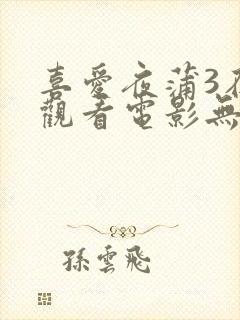 喜愛夜蒲3在
觀看電影無
孫雲飛